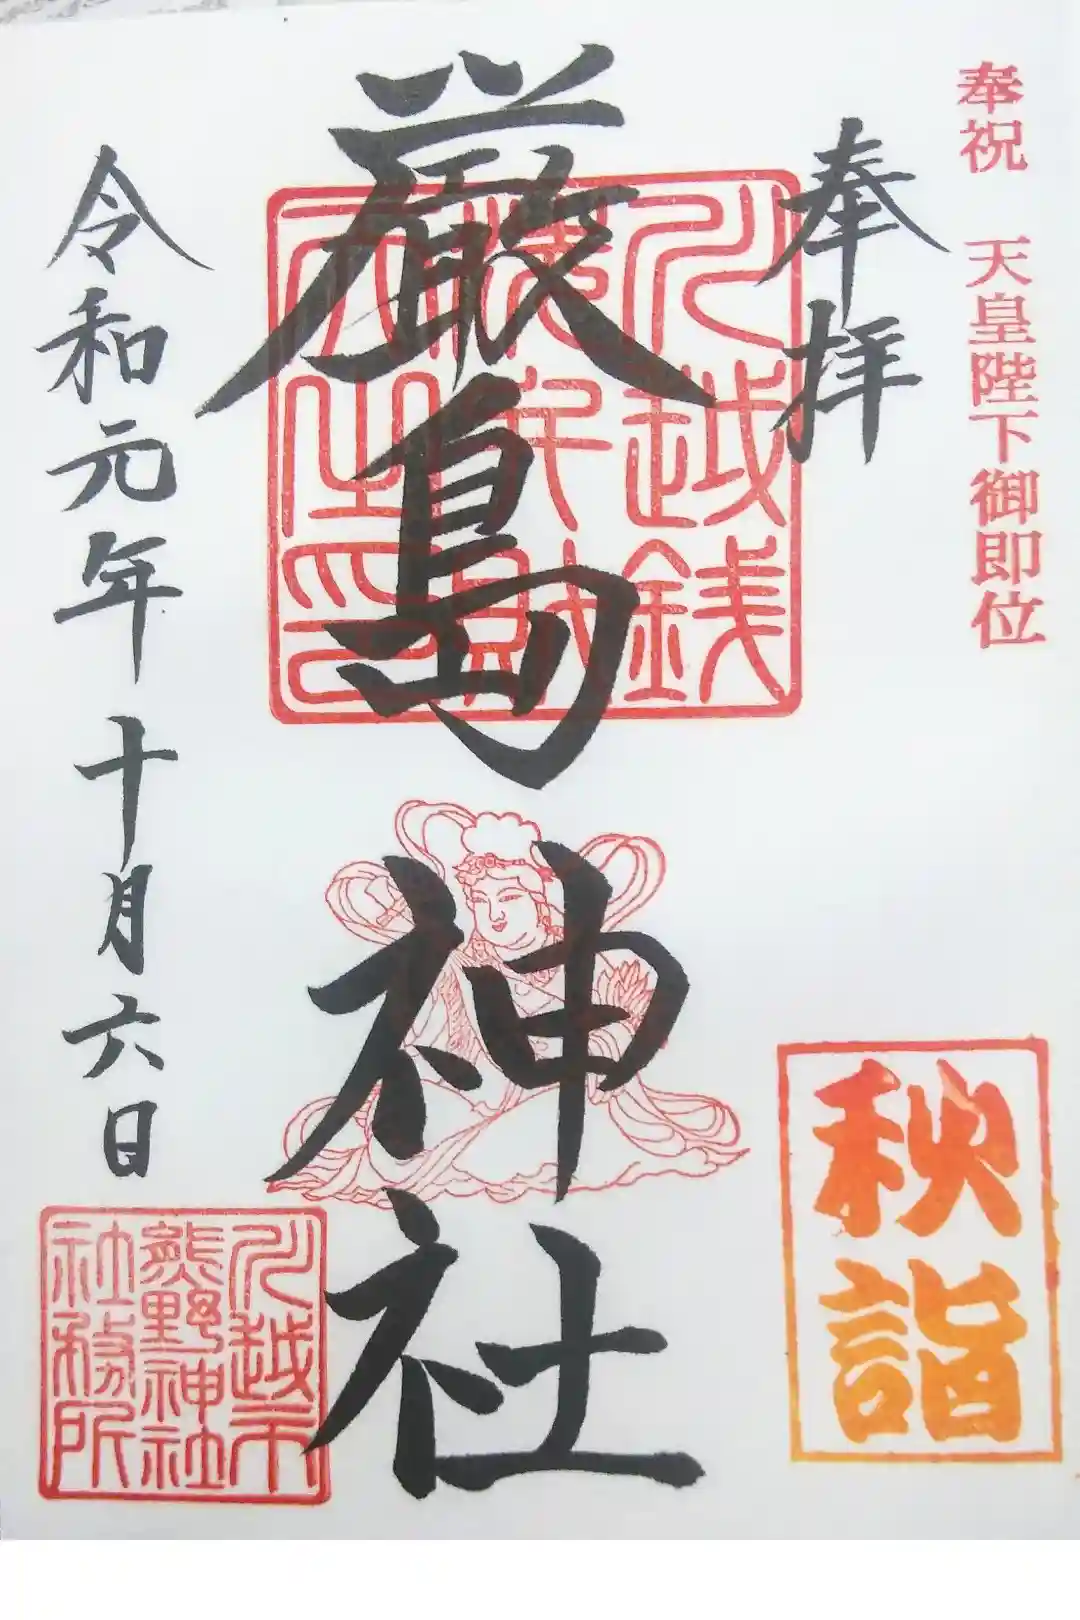 奉祝 天皇陛下御即位
奉拝
厳島神社
令和元年十月六日
川越銭
洗弁財
天之印
秋詣
川越市
熊野神社
社務所